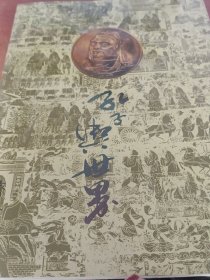 孔子
与世界